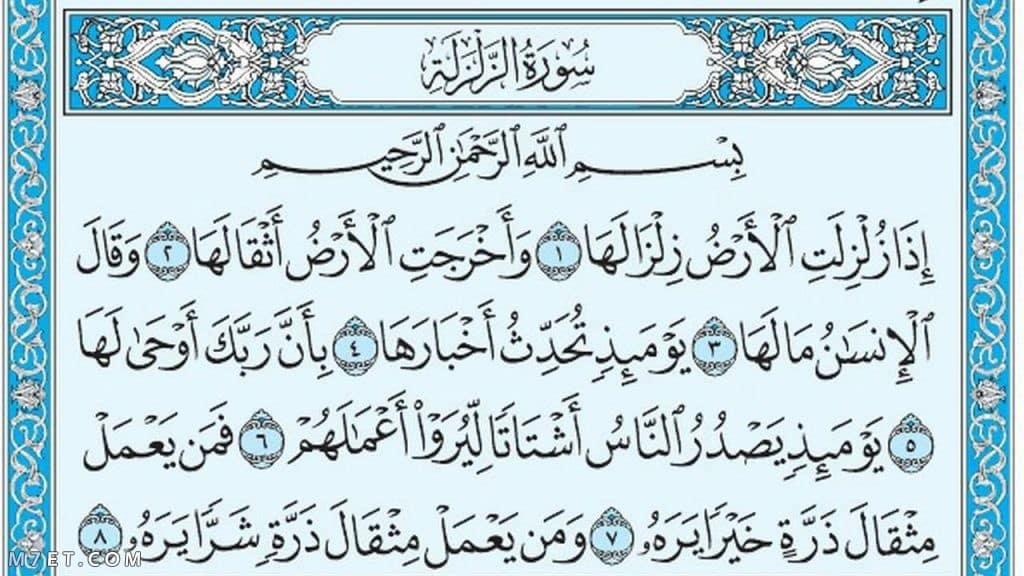 سُورَةُ الزَّلْزَلَةِ
بِسْمِ ٱللَّهِ ٱلرَّحْمَٰنِ ٱلرَّحِيمِ
إِذَا زُلْزِلَتِ ٱلْأَرْضُ زِلْزَالَهَا ١ وَأَخْرَجَتِ ٱلْأَرْضُ أَثْقَالَهَا ٢ وَقَالَ
ٱلْإِنسَٰنُ مَا لَهَا ٣ يَوْمَئِذٍ تُحَدِّثُ أَخْبَارَهَا ٤ بِأَنَّ رَبَّكَ أَوْحَىٰ لَهَا
٥ يَوْمَئِذٍ يَصْدُرُ ٱلنَّاسُ أَشْتَاتًا لِّيُرَوْا۟ أَعْمَٰلَهُمْ ٦ فَمَن يَعْمَلْ
مِثْقَالَ ذَرَّةٍ خَيْرًا يَرَهُۥ ٧ وَمَن يَعْمَلْ مِثْقَالَ ذَرَّةٍ شَرًّا يَرَهُۥ ٨
M7ET.COM